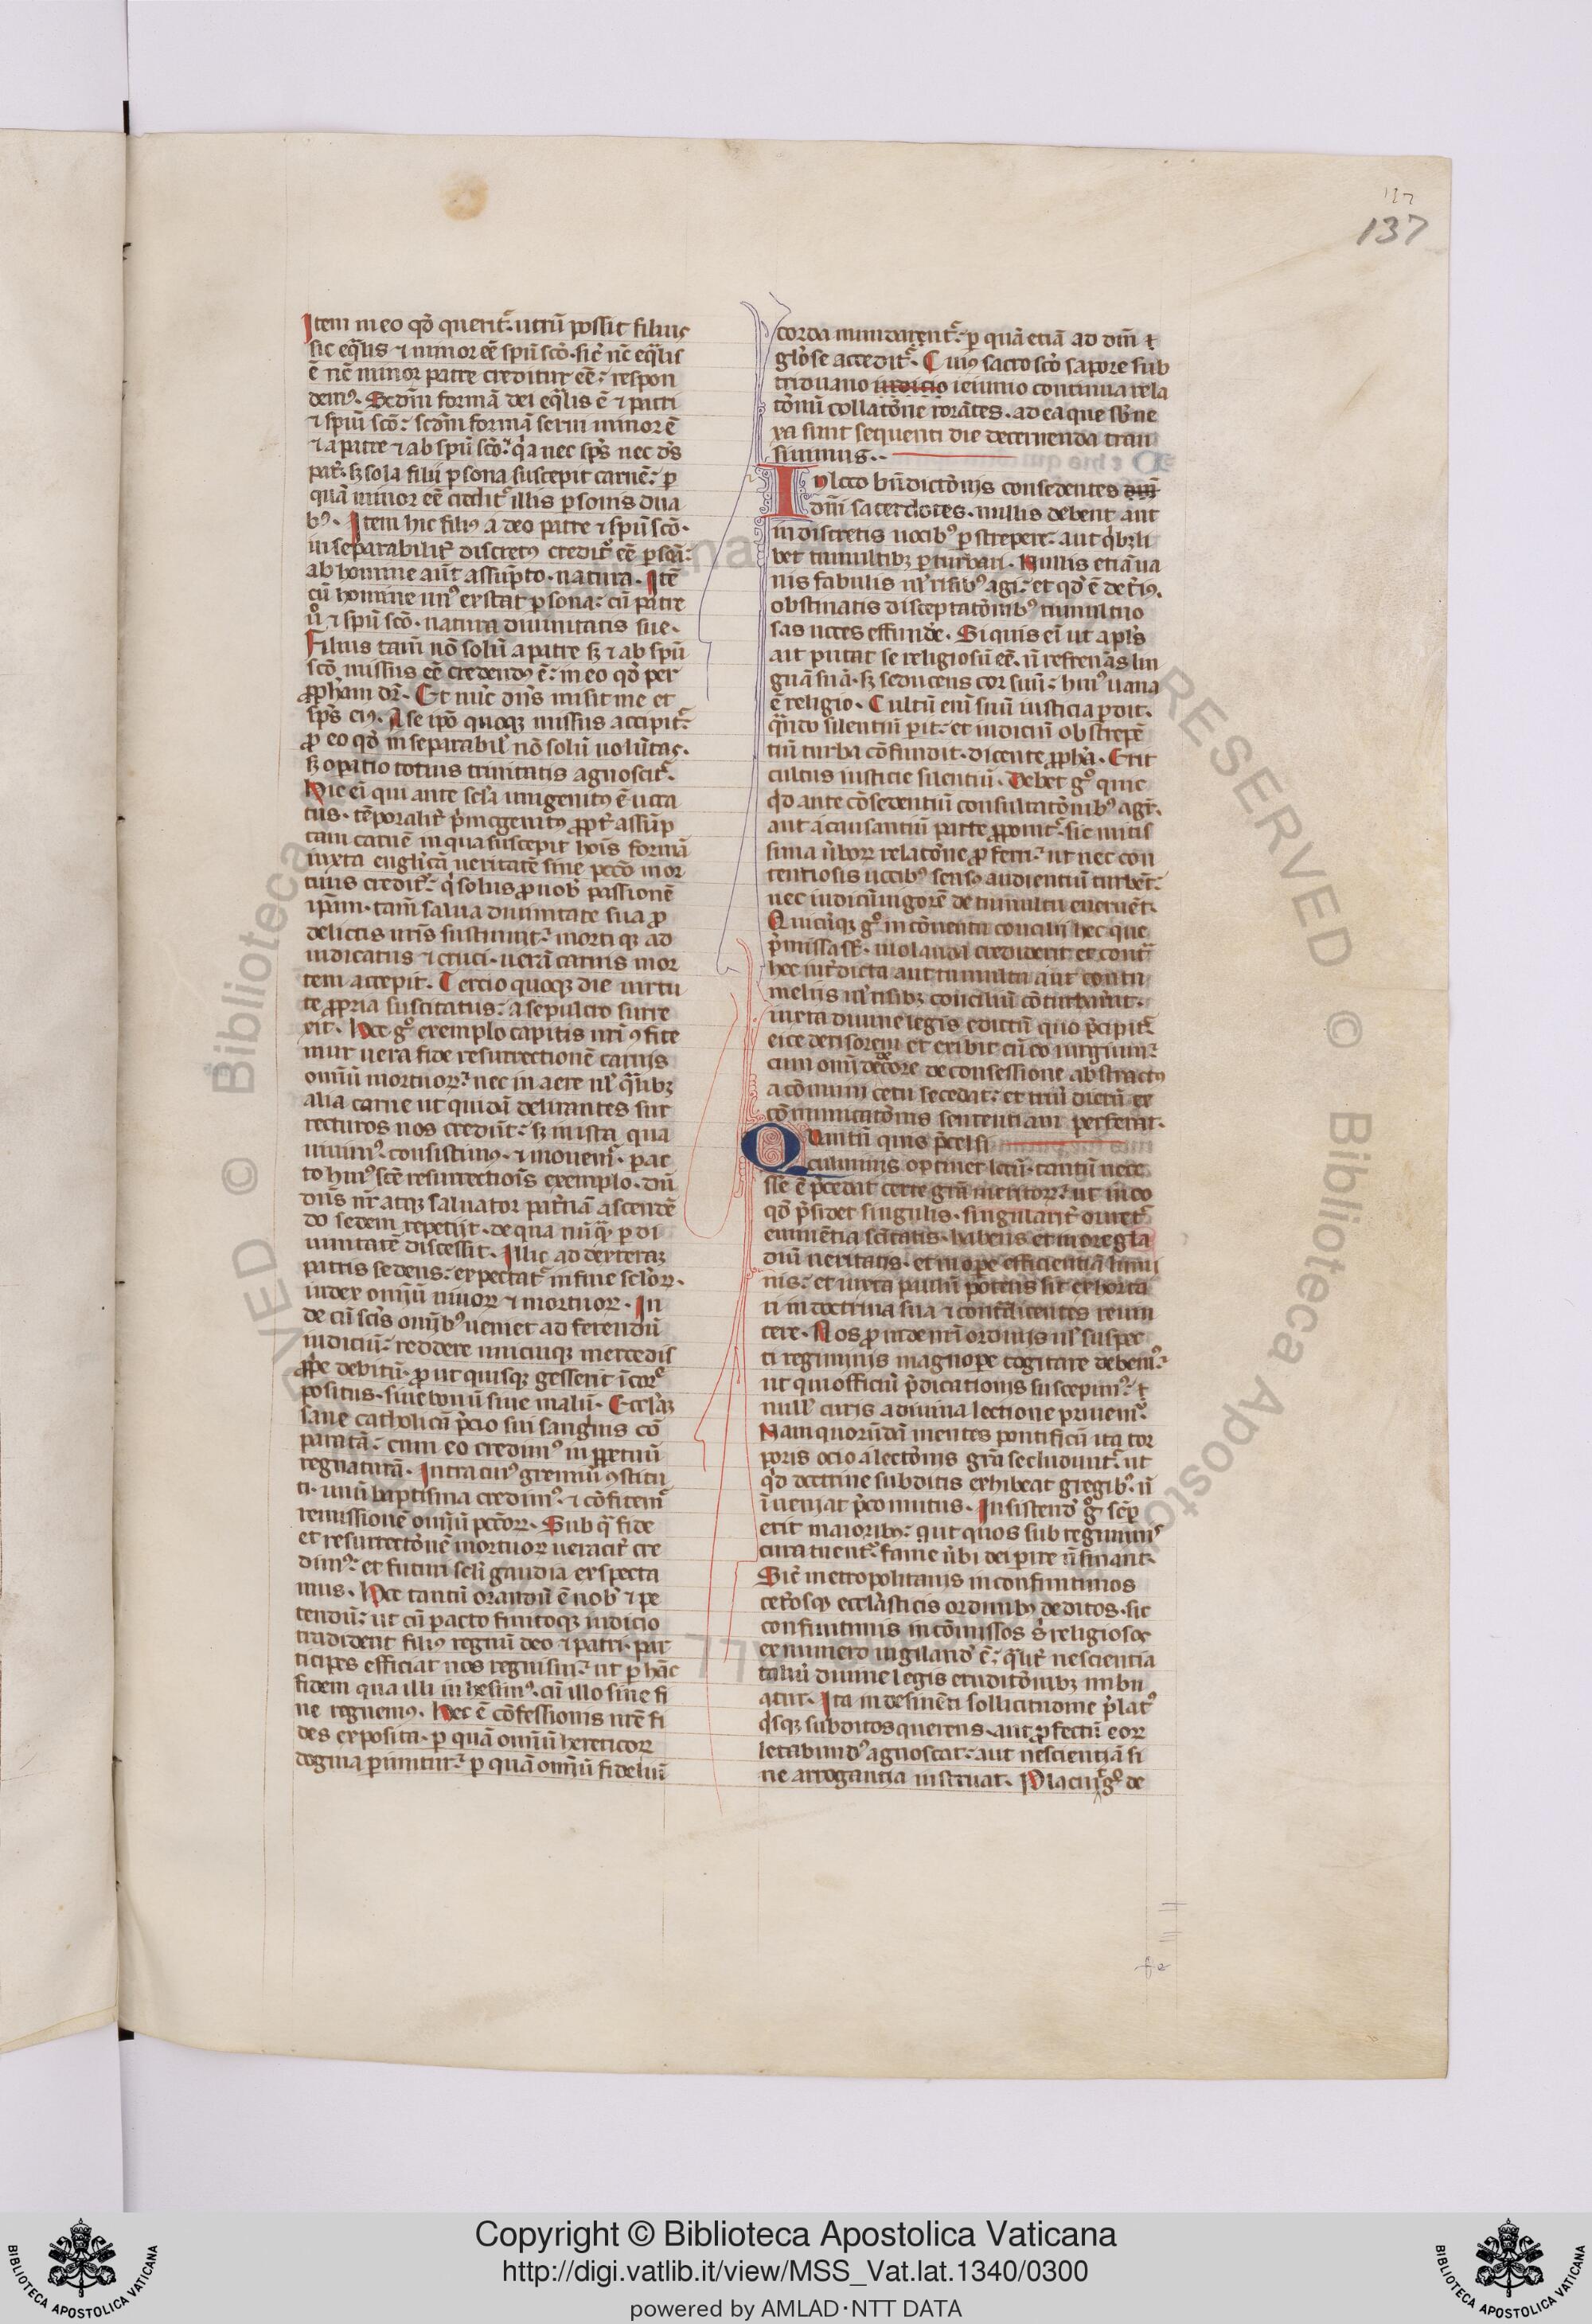 137
137
Item in eo qđ querit᷑. utrū possit filius
sic eqͣlis ⁊ minor eē spū scō. sic̄ nc̄ eqͣlis
ē nc̄ minor patre creditur eē: respon
dem᷒. Scdm̄ formā dei eqͣlis ē ⁊ patri
⁊ spūi scō: scdm̄ formā serui minor ē
⁊ a patre ⁊ ab spū scō: qͥa nec sp̄s nec d̄s
pat̄. sꝫ sola filii ꝑsona suscepit carnē: ꝑ
quā minor eē credit᷑ illis ꝑsonis dua
b᷒. Item hic fili᷒ a deo patre ⁊ spū scō.
inseparabilit̄ discret᷒ credit᷑ eē ꝑsōa:
ab homine aūt assūpto. natura. Itē
cū homine un᷒ exstat ꝑsona: cū patre
uͦ ⁊ spū scō. natura diuinitatis sue.
Filius tam̄ nō solū a patre sꝫ ⁊ ab spū
scō missus eē credend᷒ ē: in eo qđ per
ꝓph̄am dr̄. Et nūc dn̄s misit me et
sp̄s ei᷒. A se ip̄o quoqꝫ missus accipit᷑:
ꝓ eo qđ inseparabil̄ nō solū uolūtas.
sꝫ oꝑatio totius trinitatis agnoscit᷑.
Hic ei̅ qui ante scl̄a unigenit᷒ ē uoca
tus. tēporalit̄ pͥmogenit᷒ ꝓpt̄ assūp
tam carnē in qua suscepit hoīs formā
iuxta eugl̄icā ueritatē sine pccō mor
tuus credit᷑: qͥ solus ꝓ nob̄ passionē
ip̄am. tam̄ salua diuinitate sua ꝓ
delictis nr̄is sustinuit: morti qꝫ ad
iudicatus ⁊ cruci. uerā carnis mor
tem accepit. Tercio quoqꝫ die uirtu
te ꝓpria suscitatus: a sepulcro surre
xit. Hoc gͦ exemplo capitis nr̄i ꝯfite
mur uera fide resurrectionē carnis
omīū mortuoꝝ: nec in aere ul̄ qͣlibꝫ
alia carne ut quidā delirantes sur
recturos nos credūt: sꝫ in ista qua
uiuim᷒. consistim᷒. ⁊ mouem᷒. ꝑac
to hui᷒ scē resurrectiōis exemplo. dn̄
dn̄s nr̄ atqꝫ saluator pat̄nā ascendē
do sedem repetiit. de qua nūqͣ ꝑ di
uinitatē discessit. Illic ad dexteraꝫ
patris sedens: expectat᷑ in fine scl̄oꝝ.
iudex omīū uiuoꝝ ⁊ mortuoꝝ. In
de cū scīs omīb᷒ ueniet ad ferendū
iudiciū: reddere unicuiqꝫ mercedis
ꝓp̄e debitū. ꝓut quisqꝫ gesserit ī corꝑ
positus. siue bonū siue malū. Eccl̄iaꝫ
sane catholicā pͥcio sui sanguis cō
paratā: cum eo credim᷒ in ꝑpetuū
regnaturā. Intra cui᷒ gremiū ꝯstitu
ti. unū baptisma credim᷒. ⁊ cōfitem᷑
remissionē omīū pccōꝝ. Sub qͣ fide
et resurrectōnē mortuoꝝ ueracit̄ cre
dim᷒: et futuri scl̄i gaudia exspecta
mus. Hoc tantū orandū ē nob̄ ⁊ pe
tendū: ut cū ꝑacto finitoqꝫ iudicio
tradiderit fili᷒ regnū deo ⁊ patri. par
ticipes efficiat nos regni sui: ut ꝑ hāc
fidem qua illi inhesim᷒. cū illo sine fi
ne regnem᷒. Hec ē cōfessionis nr̄e fi
des exposita. ꝑ quā omīū hereticoꝝ
dogma ꝑimitur: ꝑ quā omīū fideliū
corda mundarent᷑: ꝑ quā etiā ad dm̄ ⁊
glōse accedit᷑. Cui᷒ sacro scō sapore sub
triduano iudicio ieiunio continua rela
tōnū collatōne rorātes. ad ea que sb̄ne
xa sunt sequenti die decernenda tran
siuimus.
In loco bn̄dictōnis consedentes dn̄i
dn̄i sacerdotes. nullis debent aut
indiscretis uocib᷒ ꝑstrepere: aut qͥbꝫli
bet tumultibꝫ ꝑturbari. Nullis etiā ua
nis fabulis ul̄ risib᷒ agi: et qđ ē det̄i᷒.
obstinatis disceptatōnib᷒ tumultuo
sas uoces effundͤe. Siquis ei̅ ut apl̄s
ait putat se religiosū eē. ñ refrenās lin
guā suā. sꝫ seducens cor suū: hui᷒ uana
ē religio. Cultū eni̅ suū iusticia ꝑdit.
qͣndo silentiū ꝑit: et iudiciū obstrepē
tiū turba cōfundit. dicente ꝓph̄a. Erit
cultus iusticie silentiū. Debet gͦ quic
qͥd ante cōsedentiū consultatōnib᷒ agit᷑.
aut a causantiū parte ꝓponit᷑. sic mitis
sima ūboꝝ relatōne ꝓferri: ut nec con
tentiosis uocib᷒ sens᷒ audientiū turbēt:
nec iudicii uigorē de tumultu eneruēt.
Quicūqꝫ gͦ in cōuentu concilii hec que
pͥmissa sūt. uiolanda crediderit et contͣ
hec int̄dicta aut tumultu aut contu
meliis ul̄ risibꝫ conciliū cōturbauīt.
iuxta diuine legis edictū quo pͥcipit᷑
eice derisorem et exibit cū eo iurgium:
cum omī dedecore de consessione abstract᷒
a cōmuni cetu secedat: et triū dierū ex
cōmunicatōnis sententiam perferat.
Quantū quis pͥcelsi
culminis optinet locū. tantū nece
sse ē pͥcedat certe grā meritoꝝ: ut in eo
qđ pͥsidet singulis. singularit̄ ornet᷑
eminētia scītatis. habens et in ore gla
diū ueritatis. et in oꝑe efficientiā lumi
nis: et iuxta paulū potens sit exhorta
ri in doctrina sua ⁊ contradicentes reuin
cere. Nos ꝓinde nr̄i ordinis ul̄ suscep
ti regiminis magnoꝑe cogitare debem᷒:
ut qui officiū pͥdicationis suscepim᷒: ⁊
null̄ curis a diuina lectione priuem᷑.
Nam quorūdā mentes pontificū ita cor
poris ocio a lectōnis grā secludunt᷑. ut
qͥd doctrine subditis exhibeat gregib᷒. ñ
īueniat pͥco mutus. Insistendͦ gͦ semꝑ
erit maiorib᷒: ut quos sub regiminis
cura tuent᷑: fame ūbi dei ꝑire ñ sinant.
Sic̄ metropolitanis in confinitimos
cet̄osqꝫ eccl̄iasticis ordinib᷒ deditos. sic
confinitimis in cōmissos sͥ religiosos
ex numero uigilandͦ ē: qͣlit̄ nescientia
taliū diuine legis eruditōnibꝫ imbu
atur. Ita indesinēti sollicitudine pͥlat᷒
qͥsqꝫ subditos querens. aut ꝓfectū eoꝝ
letabund᷒ agnoscat: aut nescientiā si
ne arrogantia instruat. Placuit gͦ de
Copyright © Biblioteca Apostolica Vaticana
http://digi.vatlib.it/view/MSS_Vat.lat.1340/0300
powered by AMLAD·NTT DATA
BIBLIOTECA APOSTOLICA VATICANA
BIBLIOTECA APOSTOLICA VATICANA